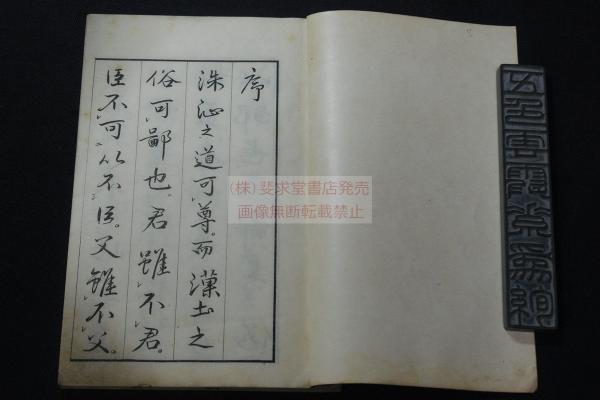 序
洙沚之道可尊。而漢土之
俗可鄙也。君雖不君。
臣不可以不臣。父雖不父。
(株)斐求堂書店発売
画像無断転載禁止